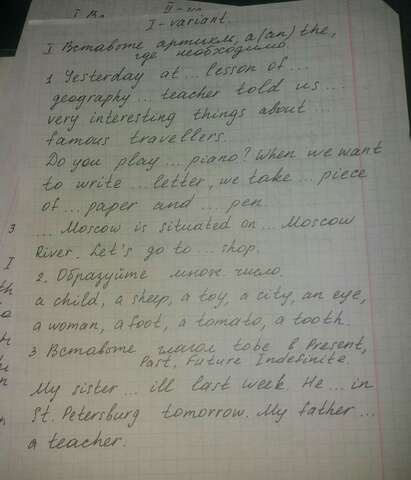 I Ва
II - ва
I - variant.
I Вставьте артикли, a(an) the,
где необходимо
1 Yesterday at ... lesson of ...
geography ... teacher told us ...
very interesting things about ...
famous travellers.
Do you play ... piano? When we want
to write ... letter, we take ... piece
of ... paper and ... pen.
3 ... Moscow is situated on ... Moscow
River. Let's go to ... shop.
2. Образуйте множ. число.
a child, a sheep, a toy, a city, an eye,
a woman, a foot, a tomato, a tooth.
3 Вставьте глагол to be в Present,
Past, Future Indefinite.
My sister ... ill last week. He ... in
St. Petersburg tomorrow. My father ...
a teacher.